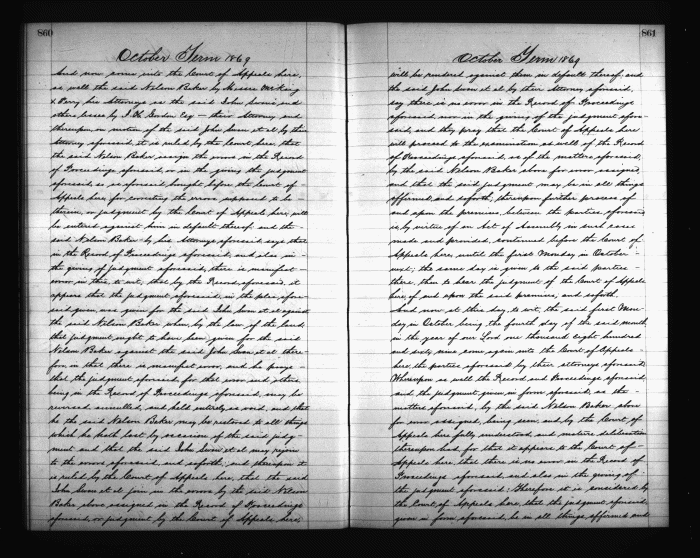 860
October Term 1869
And now come into the Court of Appeals here,
as well the said Nelson Baker by Messrs
& Perry his Attorneys as the said John and
others by J. H. Gordon Esq — their Attorney and
thereupon on motion of the said John et al by their
Attorney aforesaid it is ruled by the Court here, that
the said Nelson Baker assign the errors in the Record
of Proceedings aforesaid, or in the giving the judgment
aforesaid, as is aforesaid brought before the Court of
Appeals here, for correcting the errors, supposed to be
therein, or judgment by the Court of Appeals here, will
be entered against him in default thereof. and the
said Nelson Baker by his Attorneys aforesaid, says that
in the Record of Proceedings aforesaid, and also in
the giving of judgment aforesaid, there is manifest
error in this, to wit, that by the Record aforesaid, it
appears that the judgment aforesaid, in the plea afore-
said given, was given for the said John et al against
the said Nelson Baker, when by the law of the land,
that judgment ought to have been given for the said
Nelson Baker against the said John et al there
fore in that there is manifest error, and he prays
that the judgment aforesaid, for that error, and others
being in the Record of Proceedings aforesaid, may be
reversed annulled, and held entirely as void, and that
he the said Nelson Baker may be restored to all things
which he hath lost by occasion of the said judg-
ment and that the said John et al may rejoin
to the errors aforesaid, and soforth, and thereupon it
is ruled by the Court of Appeals here, that the said
John et al join in the errors by the said Nelson
Baker above assigned in the Record of Proceedings
aforesaid, or judgment by the Court of Appeals here,
861
October Term 1869
will be rendered against them in default thereof, and
the said John et al by their Attorney aforesaid,
say there is no error in the Record of Proceedings
aforesaid, nor in the giving of the judgment afore-
said, and they pray that the Court of Appeals here
will proceed to the examination as well of the Record
of Proceedings aforesaid, as of the matters aforesaid,
by the said Nelson Baker above for error assigned,
and that the said judgment may be in all things
affirmed, and soforth, thereupon further process of
and upon the premises, between the parties aforesaid
is by virtue of an Act of Assembly in such cases
made and provided, continued before the Court of
Appeals here, until the first Monday in October
next; the same day is given to the said parties
there, then to hear the judgment of the Court of Appeals
here, of and upon the said premises, and soforth.
And now at this day, to wit, the said first Mon
day in October being the fourth day of the said month,
in the year of our Lord one thousand eight hundred
and sixty nine come again into the Court of Appeals
here, the parties aforesaid by their attorneys aforesaid;
Whereupon as well the Record and Proceedings aforesaid
and the judgment given in form aforesaid, as the
matters aforesaid, by the said Nelson Baker above
for error assigned, being seen, and by the Court of
Appeals here fully understood, and mature deliberation
thereupon had, for that it appears to the Court of
Appeals here, that there is no error in the Record of
Proceedings aforesaid, and also in the giving of
the judgment aforesaid; Therefore it is considered by
the Court of Appeals here, that the judgment aforesaid,
given in form aforesaid, be in all things affirmed and